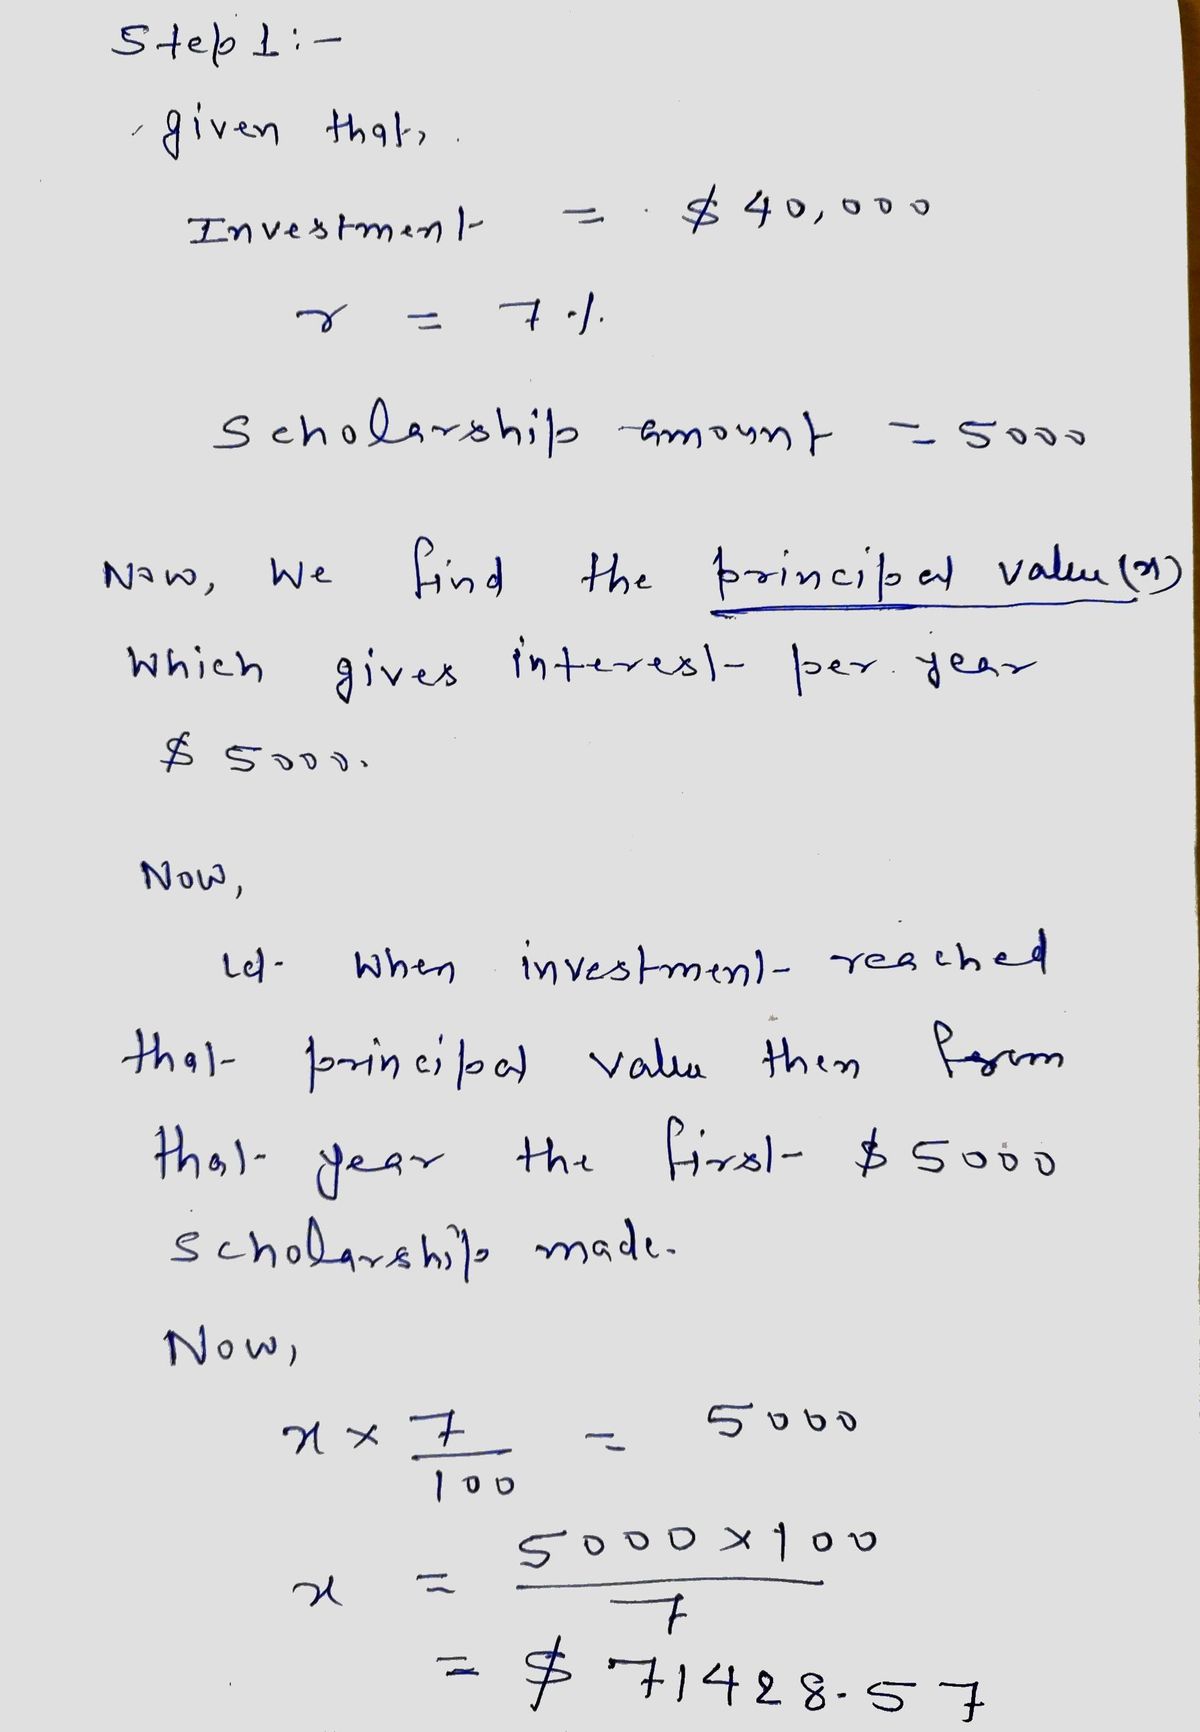 Step 1:-
given that,
Investment = $ 40,000
r = 7 %
Scholarship amount = 5000
Now, we find the principal value (x)
which gives interest per year
$ 5000.
Now,
let when investment reached
that principal value then from
that year the first $ 5000
scholarship made.
Now,
x × 7/100 = 5000
x = 5000 × 100 / 7
= $ 71428.57